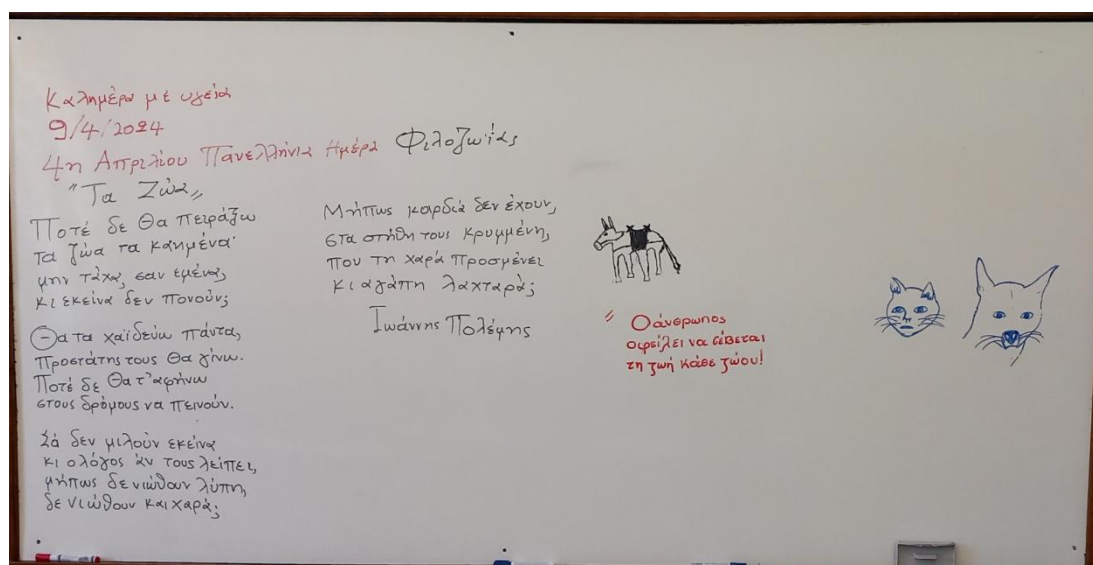 Καλημέρα με υγεία
9/4/2024
4η Απριλίου Πανελλήνια Ημέρα Φιλοζωίας
"Τα Ζώα"
Ποτέ δε θα πειράξω
τα ζώα τα καημένα·
μην τάχα, σαν εμένα,
κι εκείνα δεν πονούν;
Θα τα χαϊδεύω πάντα,
Προστάτης τους θα γίνω.
Ποτέ δε θα τ' αφήνω
στους δρόμους να πεινούν.
Σά δεν μιλούν εκείνα
κι ο λόγος άν τους λείπει,
μήπως δε νιώθουν λύπη,
δε νιώθουν και χαρά;
Μήπως καρδιά δεν έχουν,
στα στήθη τους κρυμμένη,
που τη χαρά προσμένει
κι αγάπη λαχταρά;
Ιωάννης Πολέμης
" Ο άνθρωπος
οφείλει να σέβεται
τη ζωή κάθε ζώου!